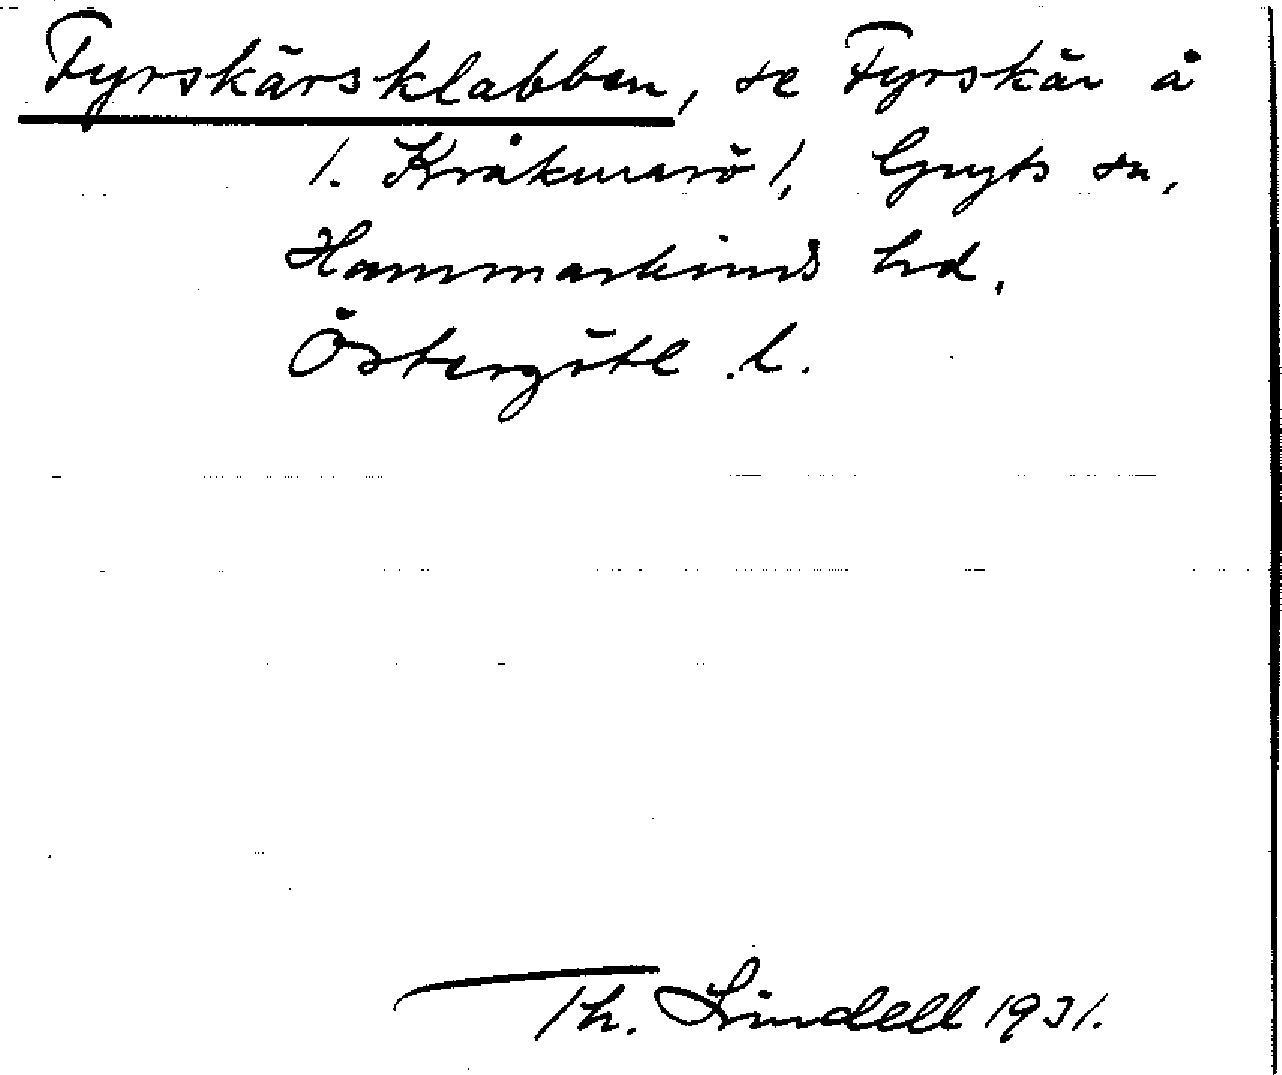 Fyrskärsklabben, se Fyrskär å
/. Kråkmarö /, Gryts sn,
Hammarkinds hd,
Östergötl. l.
Th. Lindell 1931.